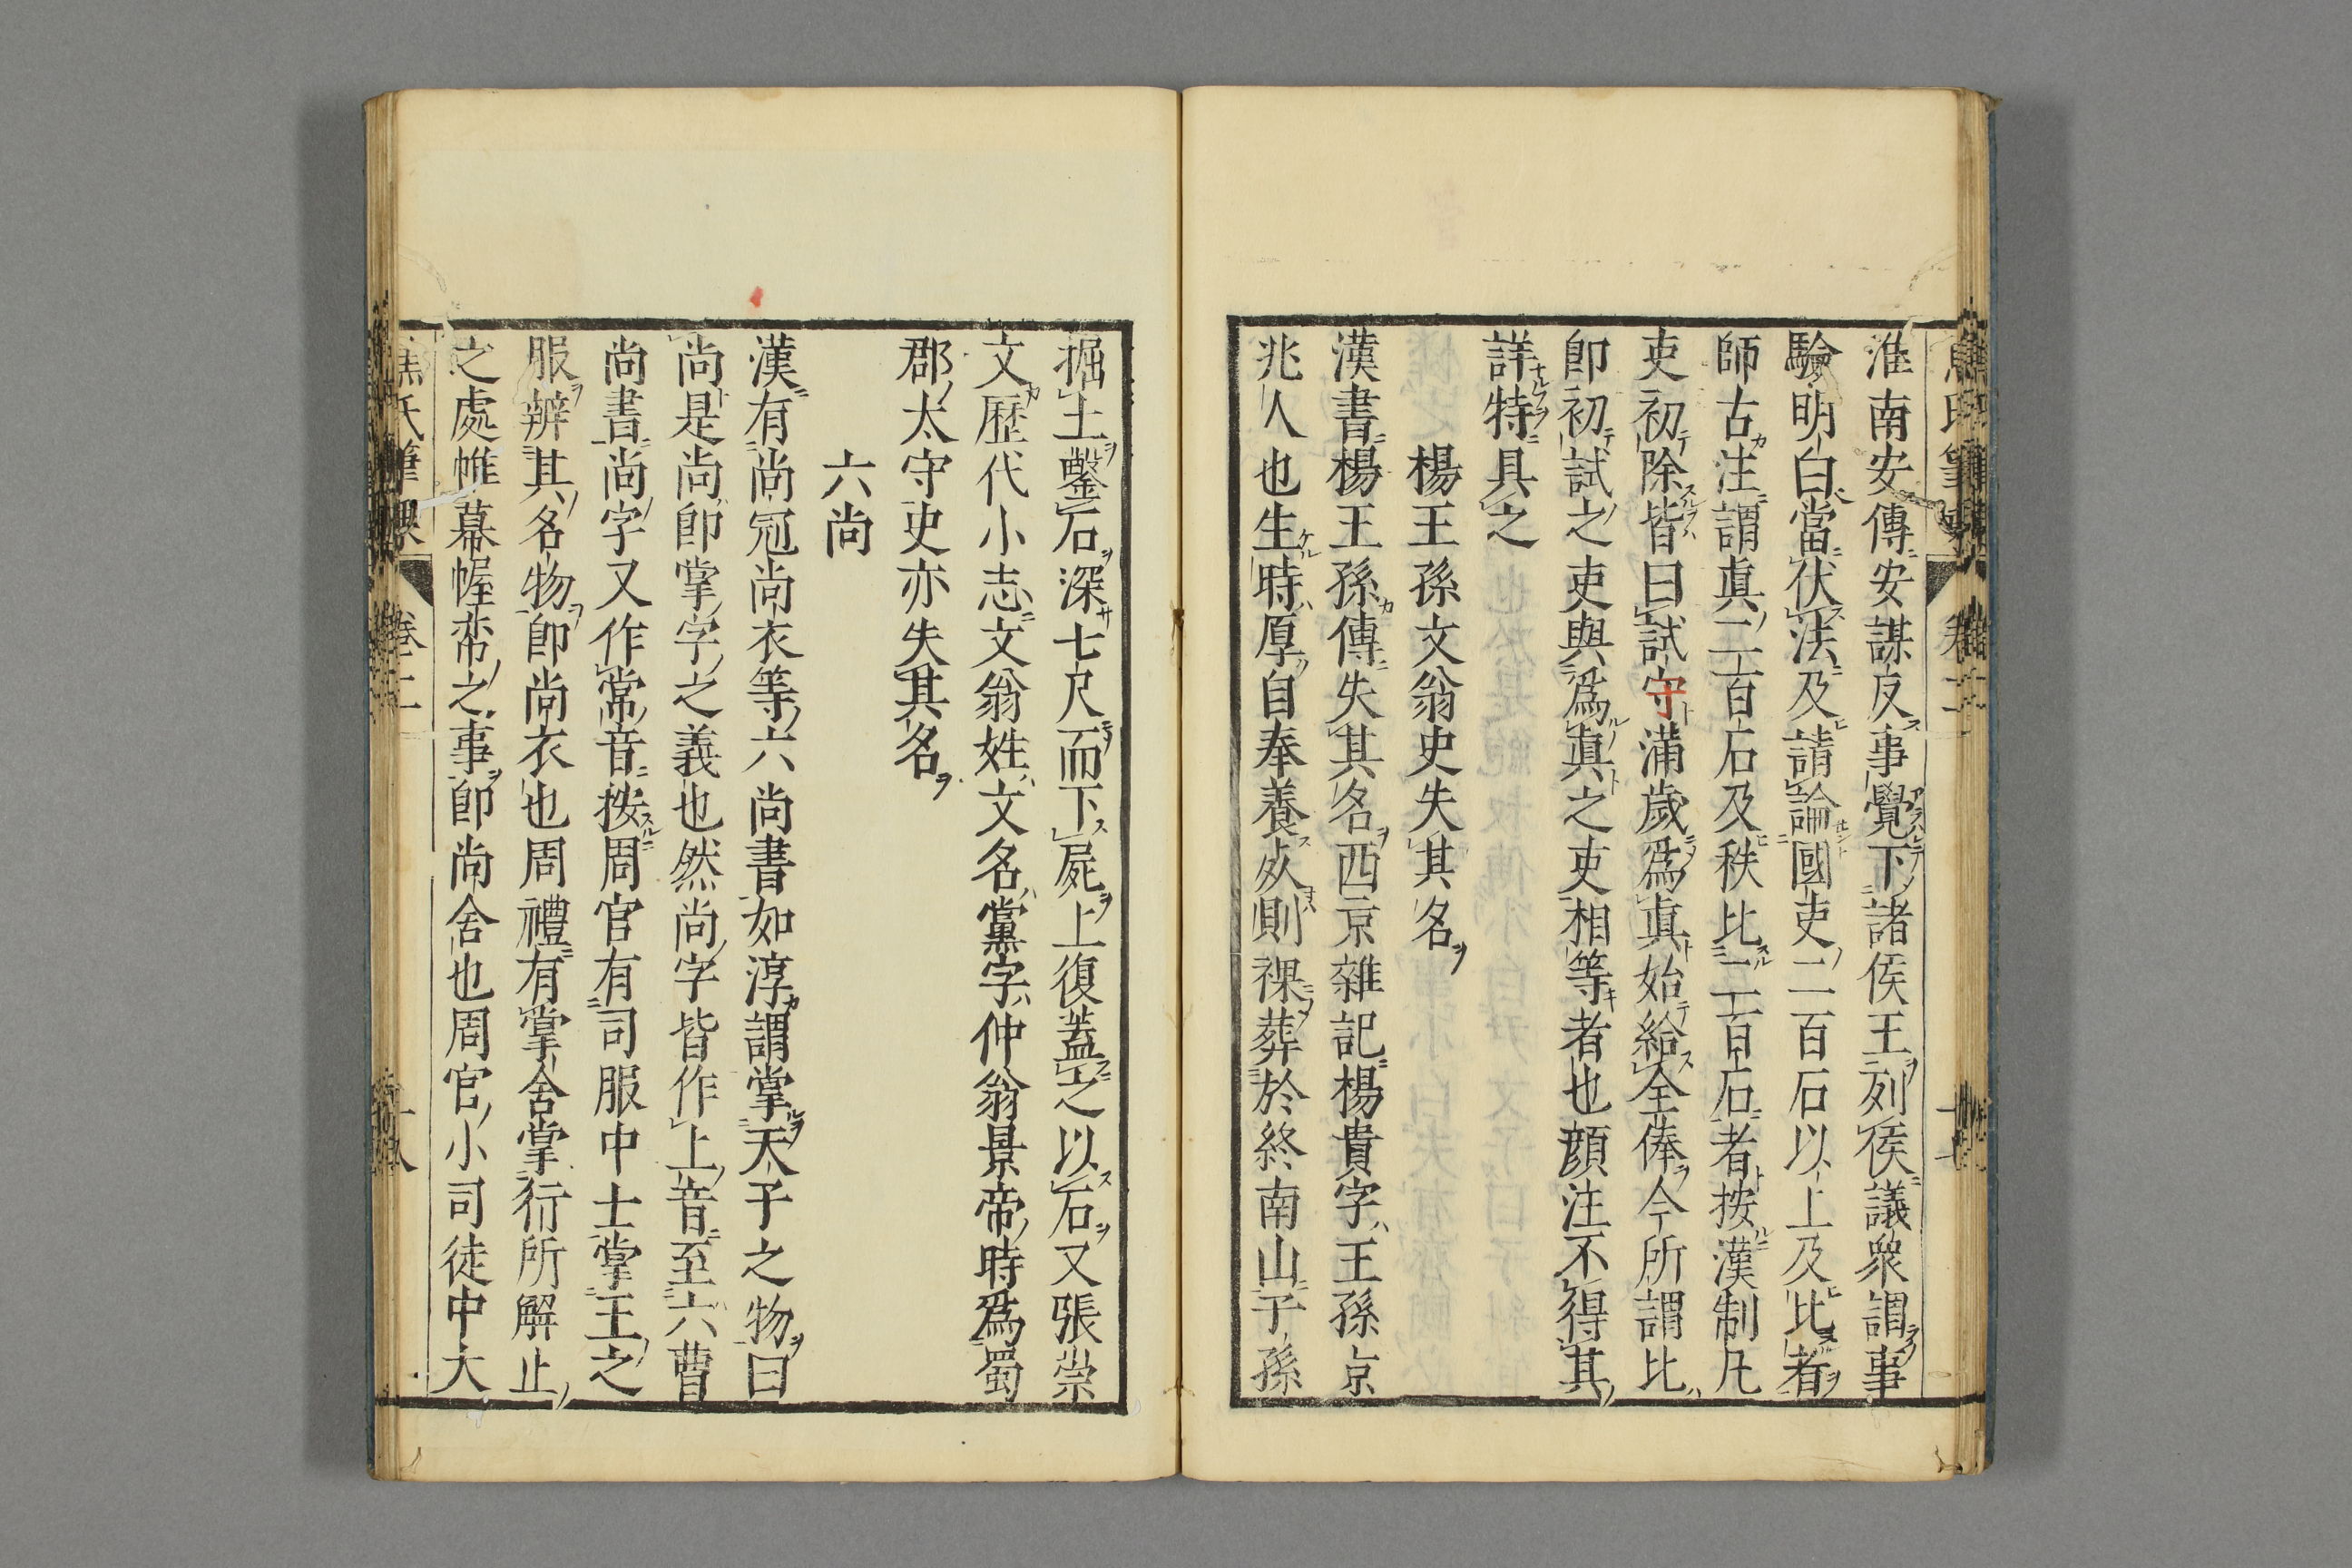 淮南安傳安謀反事覺下諸侯王列侯議衆謂事
驗明白當伏法及請論國吏二百石以上及比者
師古注謂眞二百石及秩比二百石者按漢制凡
吏初除皆曰試守滿歲爲眞始給全俸今所謂比
卽初試之吏與爲眞之吏相等者也顔注不得其
詳特具之
楊王孫文翁史失其名
漢書楊王孫傳失其名西京雜記楊貴字王孫京
兆人也生時厚自奉養死則裸葬於終南山子孫
掘土鑿石深七尺而下屍上復蓋之以石又張崇
文歷代小志文翁姓文名黨字仲翁景帝時爲蜀
郡太守史亦失其名
六尚
漢有尚冠尚衣等六尚書如淳謂掌天子之物曰
尚是尚卽掌字之義也然尚字皆作上音至六曹
尚書尚字又作常音按周官有司服中士掌王之
服辨其名物卽尚衣也周禮有掌舍掌行所解止
之處帷幕幄帟之事卽尚舍也周官小司徒中大
焦氏筆乗 卷二